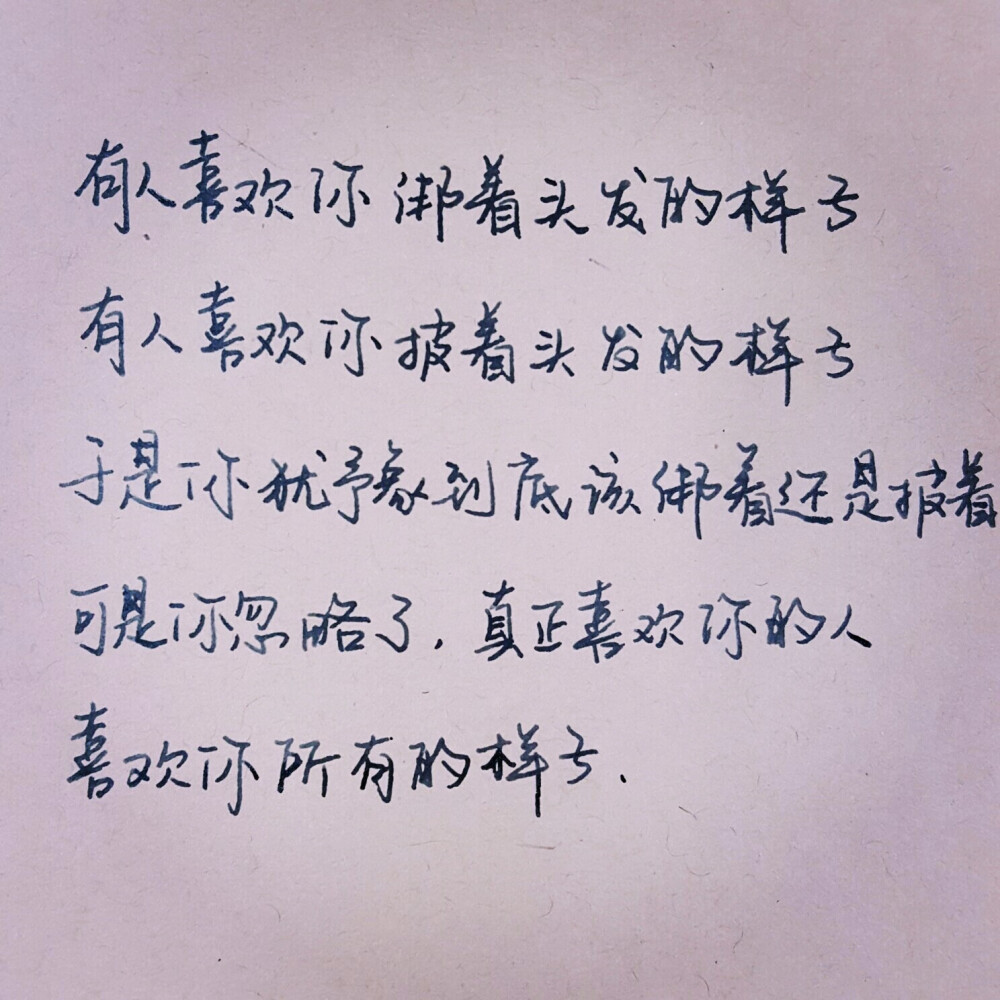 有人喜欢你绑着头发的样子
有人喜欢你披着头发的样子
于是你犹豫到底该绑着还是披着
可是你忽略了，真正喜欢你的人
喜欢你所有的样子.